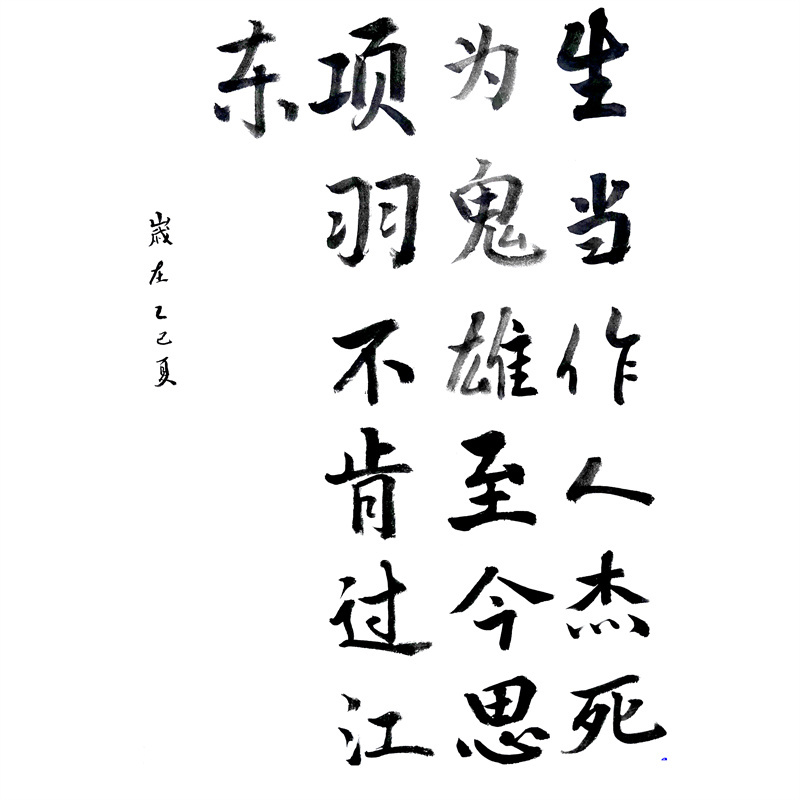 生当作人杰死
为鬼雄至今思
项羽不肯过江
东
歲在乙巳夏